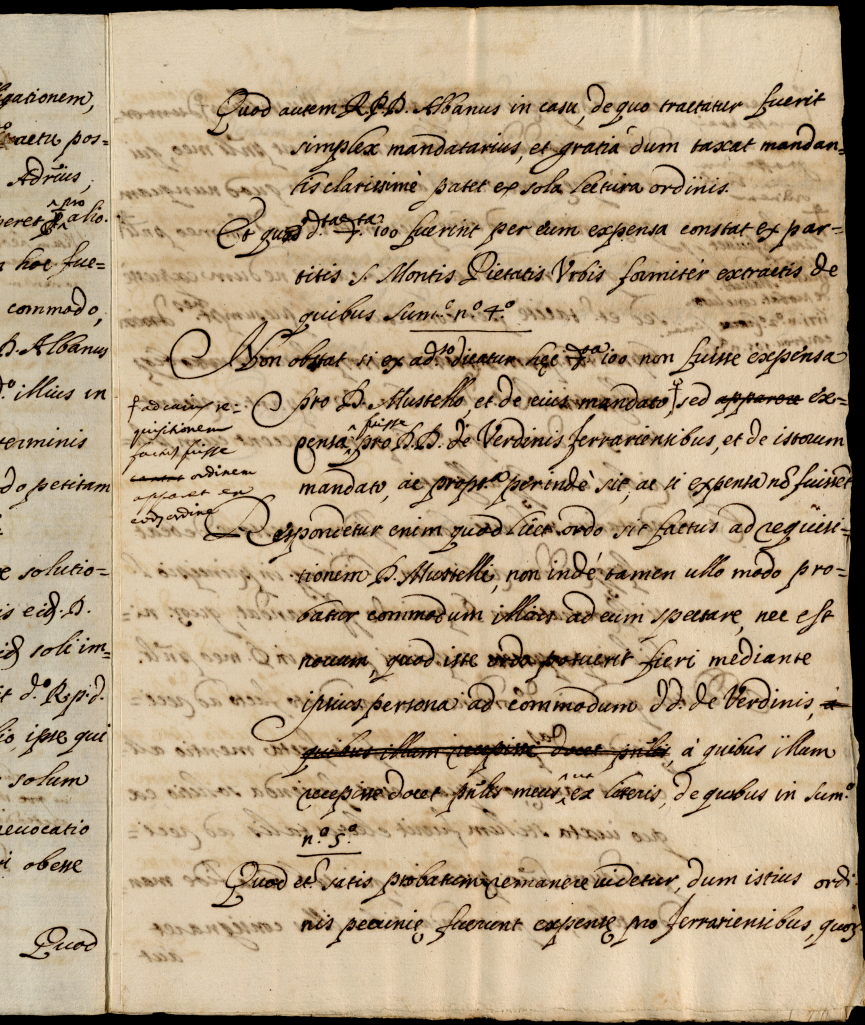 ligationem,
actu pos=
Adrius,
pro
peret alio
hoc fue=
commodo,
D. Albanus
d.º illius in
terminis
do petitam
e solutio=
is eid. D.
soli im=
it d.º R.p.d.
io ipse qui
solum
revocatio
i obesse
Quod
Quod autem R.P.D. Albanus in casu, de quo tractatur fuerit
simplex mandatarius, et gratia dum taxat mandan=
tis clarissimè patet ex sola lectura ordinis.
Et quod d.ta ▽.ta 100 fuerint per eum expensa constat ex par=
titis S. Montis Pietatis Vrbis formiter extractis de
quibus Sum.º nº 4.º
Non obstat si ex ad.so dicatur hęc ▽.ta 100 non fuisse expensa
pro D. Mustello, et de eius mandato, † sed apparere ex=
† ad cuius re=
quisitionem
fuisse
ordinem
apparet ex
eod. ordine
fuisse
pensa pro DD. de Verdinis ferrariensibus, et de istorum
mandato, ac propt.ª perindè sit, ac si expensa nō fuissēt
Respondetur enim quod licet ordo sit factus ad requisi=
tionem D. Mustelli, non indè tamen ullo modo pro=
batur commodum illius ad eum spectare, nec est
novum, quod iste ordo potuerit fieri mediante
ipsius persona ad commodum DD. de Verdinis, à
quibus illam recepisse docet
à quibus illam
recepisse docet meus, ut ex literis, de quibus in Sum.º
nº 5.º
Quod et satis probatum remanere videtur, dum istius ordi=
nis pecunię fuerunt expensę pro ferrariensibus, quor